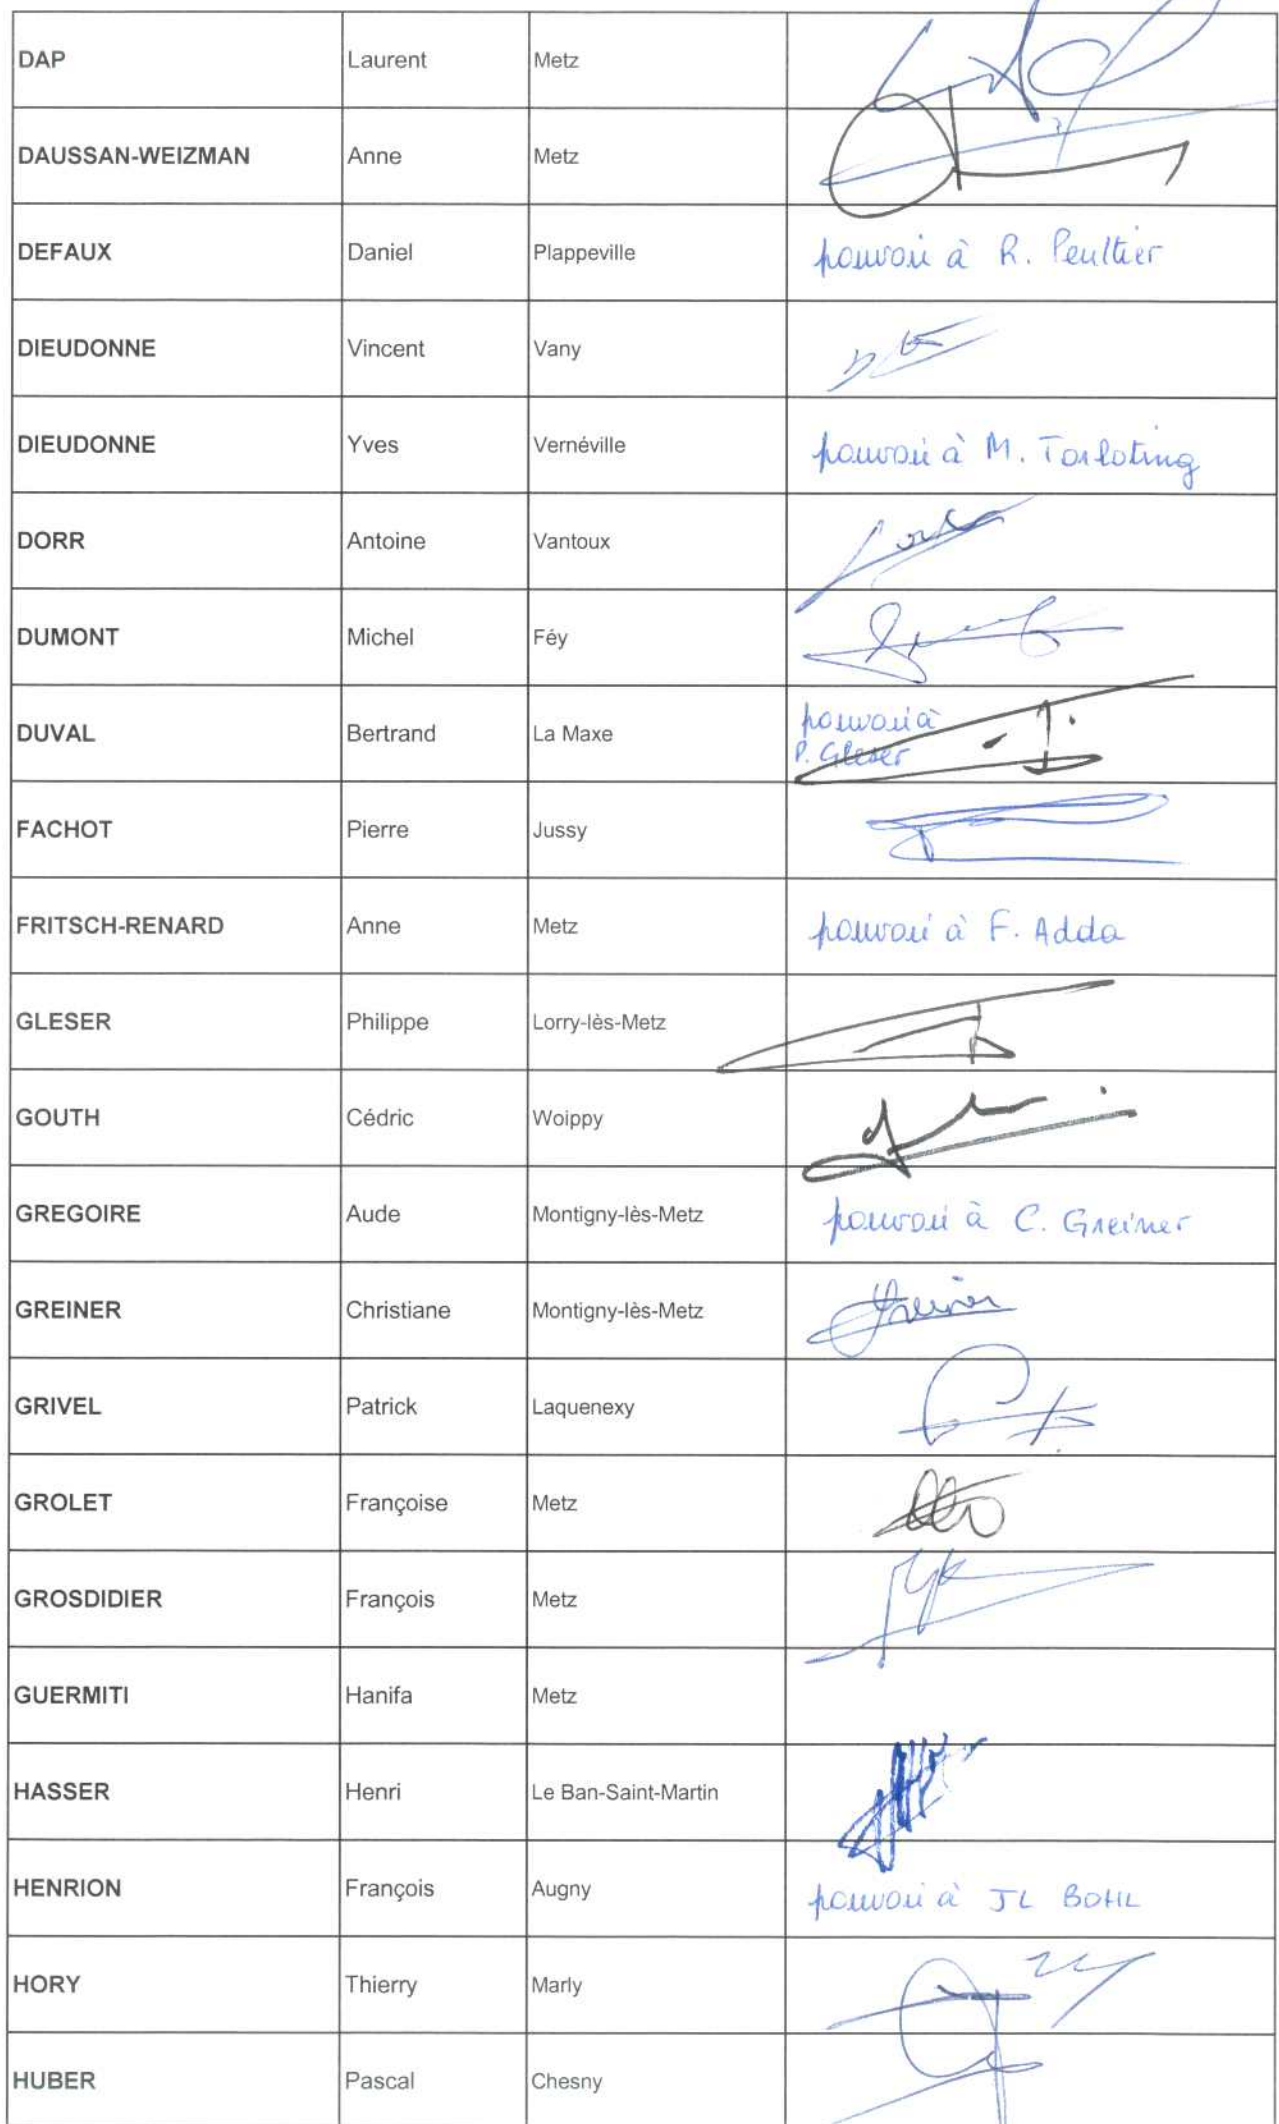 DAP Laurent Metz
DAUSSAN-WEIZMAN Anne Metz
DEFAUX Daniel Plappeville pouvoir à R. Peultier
DIEUDONNE Vincent Vany
DIEUDONNE Yves Vernéville pouvoir à M. Torloting
DORR Antoine Vantoux
DUMONT Michel Féy
DUVAL Bertrand La Maxe pouvoir à
P. Gleser
FACHOT Pierre Jussy
FRITSCH-RENARD Anne Metz pouvoir à F. Adda
GLESER Philippe Lorry-lès-Metz
GOUTH Cédric Woippy
GREGOIRE Aude Montigny-lès-Metz pouvoir à C. Greiner
GREINER Christiane Montigny-lès-Metz Greiner
GRIVEL Patrick Laquenexy
GROLET Françoise Metz
GROSDIDIER François Metz
GUERMITI Hanifa Metz
HASSER Henri Le Ban-Saint-Martin
HENRION François Augny pouvoir à JL BOHL
HORY Thierry Marly
HUBER Pascal Chesny